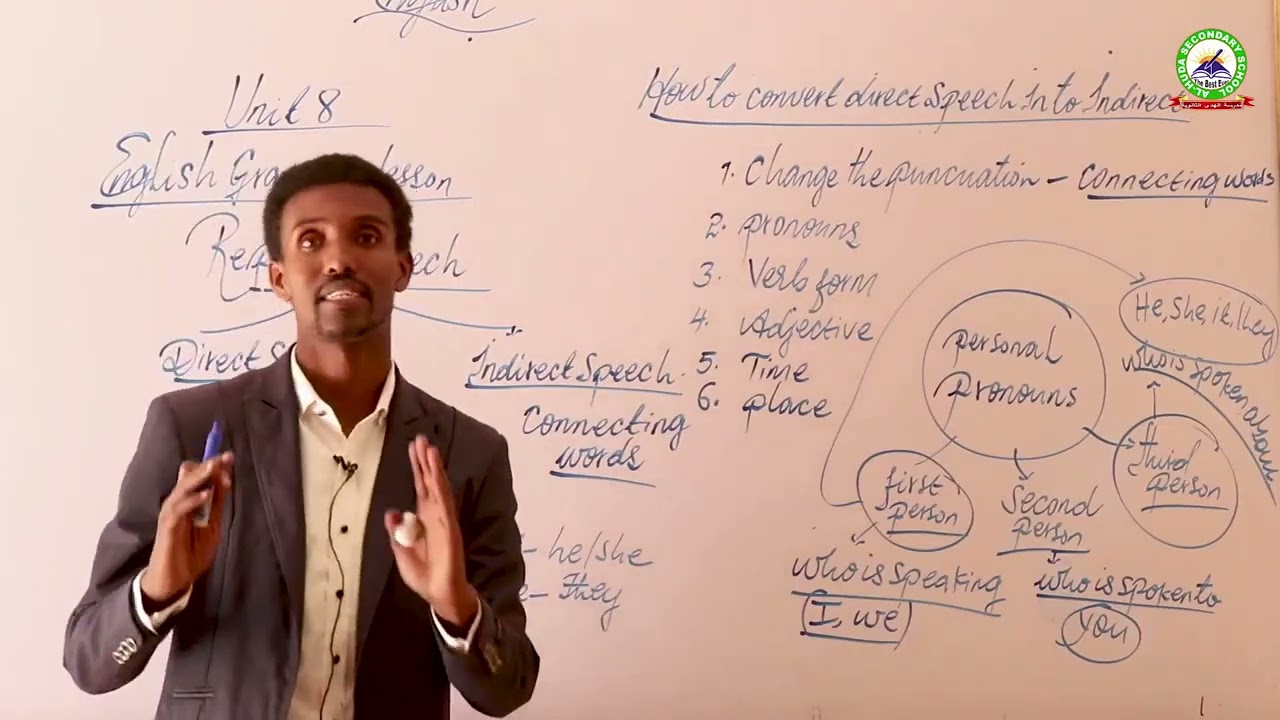 English
Unit 8
English Gra lesson
Rep ech
Direct S
Indirect Speech
Connecting
words
- he/she
- They
How to convert direct Speech In to Indirect
1. Change the puncuation - connecting words
2. pronouns
3. Verb form
4. Adjective
5. Time
6. place
personal
pronouns
He, She, it, they
who is spoken about
first
person
Second
person
third
person
who is speaking
I, we
who is spoken to
you
AL-HUDA SECONDARY SCHOOL
The Best Ever
مدرسة الهدى الثانوية